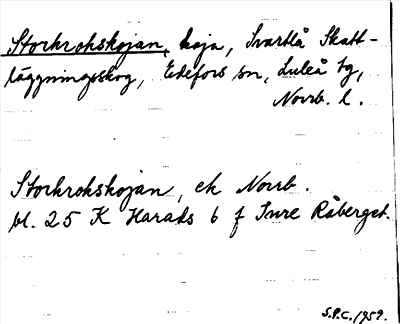 Storkrokskojan, koja, Svartlå Skatt-
läggningsskog, Edefors sn, Luleå tg,
Norrb. l.
Storkrokskojan, ek Norrb.
bl. 25 K Harads b f Inre Råberget.
S.P.C. 1959.